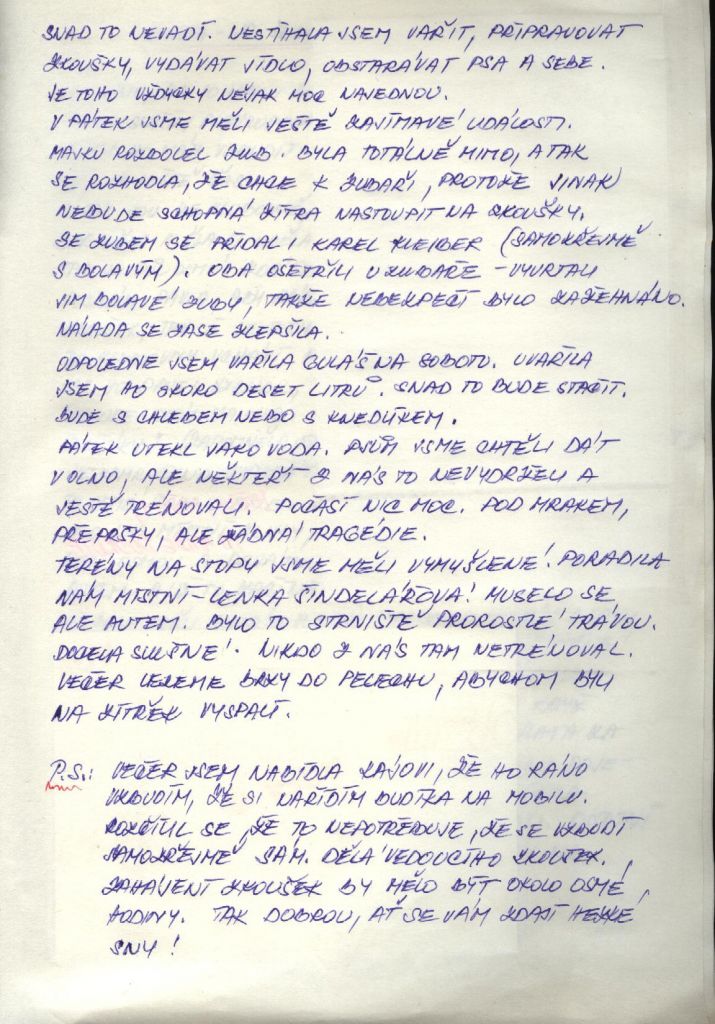 SNAD TO NEVADÍ. NESTÍHALA JSEM VAŘIT, PŘIPRAVOVAT
ZKOUŠKY, VYDÁVAT JÍDLO, OBSTARÁVAT PSA A SEBE.
JE TOHO VŽDYCKY NĚJAK MOC NAJEDNOU.
V PÁTEK JSME MĚLI JEŠTĚ ZAJÍMAVÉ UDÁLOSTI.
MAJKU ROZBOLEL ZUB. BYLA TOTÁLNĚ MIMO, A TAK
SE ROZHODLA, ŽE CHCE K ZUBAŘI, PROTOŽE JINAK
NEBUDE SCHOPNÁ ZÍTRA NASTOUPIT NA ZKOUŠKY.
SE ZUBEM SE PŘIDAL I KAREL KLEIBER (SAMOZŘEJMĚ
S BOLAVÝM). OBA OŠETŘILI U ZUBAŘE - VYVRTALI
JIM BOLAVÉ ZUBY, TAKŽE NEBEZPEČÍ BYLO ZAŽEHNÁNO.
NÁLADA SE ZASE ZLEPŠILA.
ODPOLEDNE JSEM VAŘILA GULÁŠ NA SOBOTU. UVAŘILA
JSEM HO SKORO DESET LITRŮ. SNAD TO BUDE STAČIT.
BUDE S CHLEBEM NEBO S KNEDLÍKEM.
PÁTEK UTEKL JAKO VODA. PSŮM JSME CHTĚLI DÁT
VOLNO, ALE NĚKTEŘÍ Z NÁS TO NEVYDRŽELI A
JEŠTĚ TRÉNOVALI. POČASÍ NIC MOC. POD MRAKEM,
PŘEPRŠKY, ALE ŽÁDNÁ TRAGÉDIE.
TERÉNY NA STOPY JSME MĚLI VYMYŠLENÉ. PORADILA
NÁM MÍSTNÍ - LENKA ŠINDELÁŘOVÁ. MUSELO SE
ALE AUTEM. BYLO TO STRNIŠTĚ PROROSTLÉ TRÁVOU.
DOCELA SLUŠNÉ. NIKDO Z NÁS TAM NETRÉNOVAL.
VEČER LEZEME BRZY DO PELECHU, ABYCHOM BYLI
NA ZÍTŘEK VYSPALÍ.
P.S.: VEČER JSEM NABÍDLA KÁJOVI, ŽE HO RÁNO
VZBUDÍM, ŽE SI NAŘÍDÍM BUDÍKA NA MOBILU.
ROZČÍLIL SE, ŽE TO NEPOTŘEBUJE, ŽE SE VZBUDÍ
SAMOZŘEJMĚ SÁM. DĚLÁ VEDOUCÍHO ZKOUŠEK.
ZAHÁJENÍ ZKOUŠEK BY MĚLO BÝT OKOLO OSMÉ
HODINY. TAK DOBROU, AŤ SE VÁM ZDAJÍ HEZKÉ
SNY!